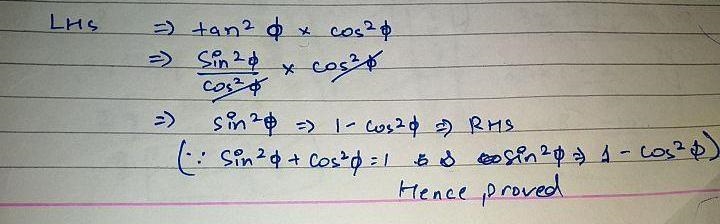 LHS ⇒ tan² ϕ × cos²ϕ
⇒ sin²ϕ/cos²ϕ × cos²ϕ
⇒ sin²ϕ ⇒ 1 - cos²ϕ ⇒ RHS
(∵ sin²ϕ + cos²ϕ = 1 sin²ϕ ⇒ 1 - cos²ϕ)
Hence, proved